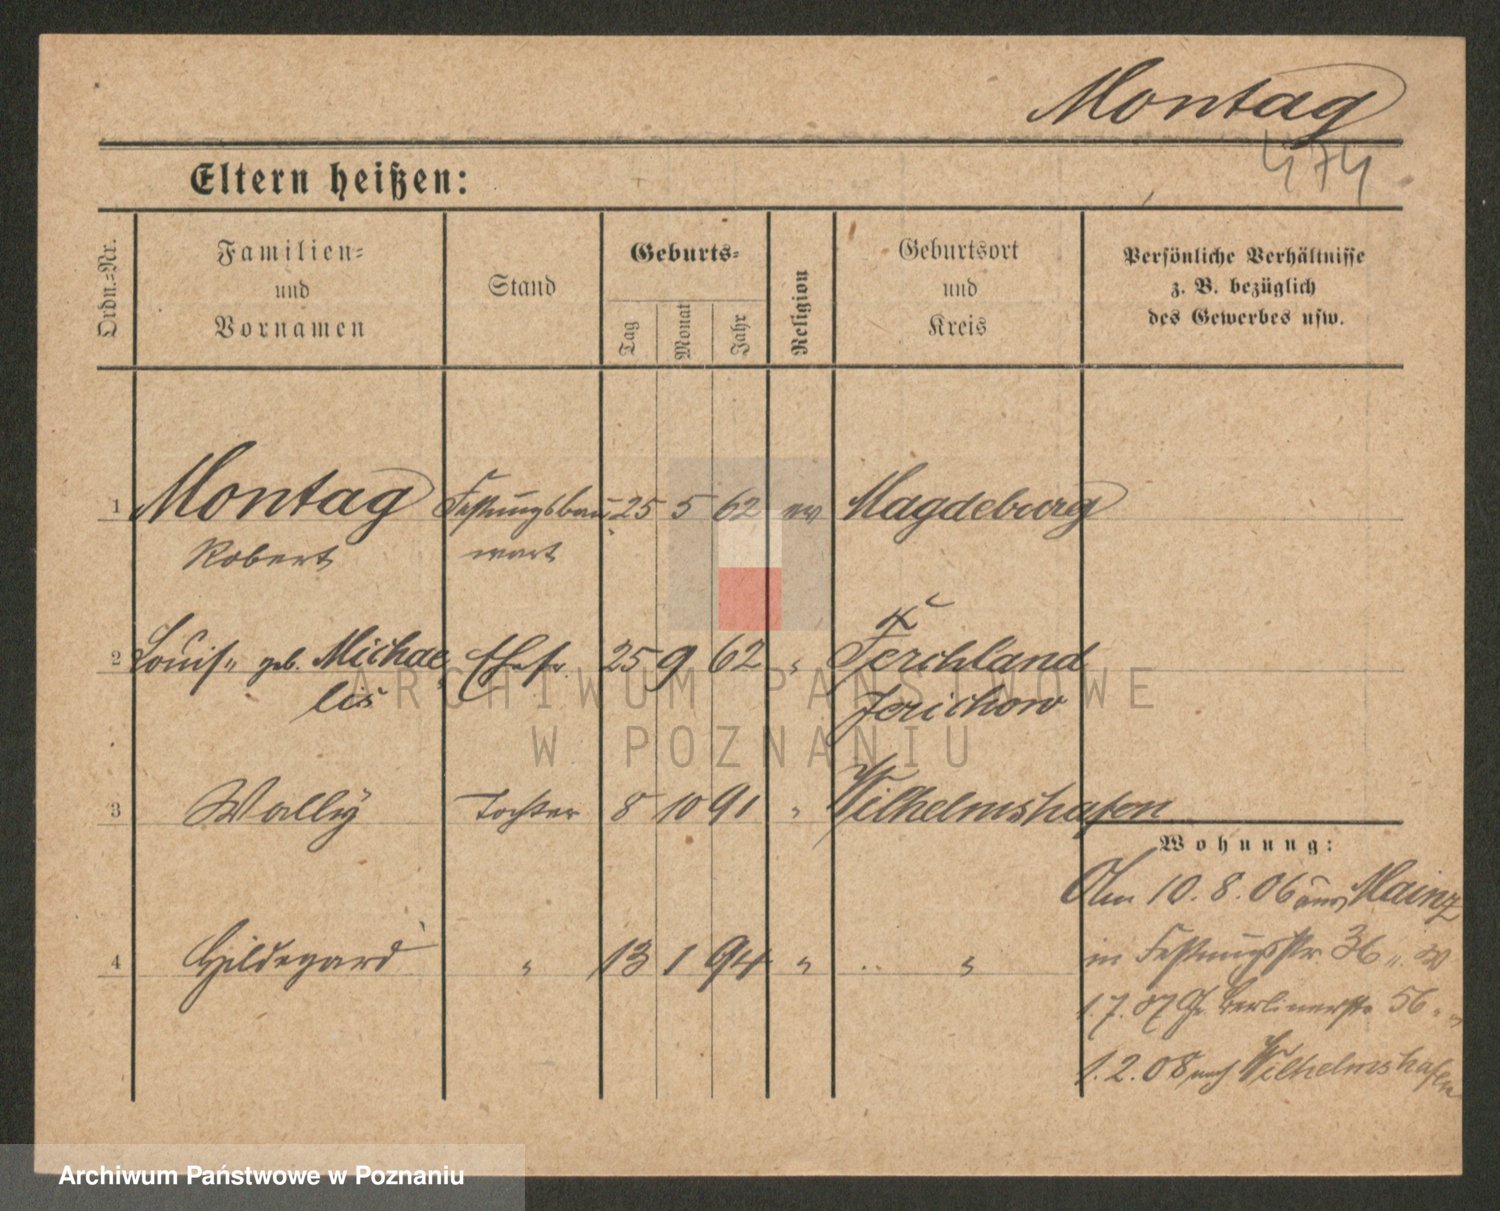 Montag
474
Eltern heißen:
Ordn.-Nr.
Familien-
und
Vornamen
Stand
Geburts-
Tag
Monat
Jahr
Religion
Geburtsort
und
Kreis
Persönliche Verhältnisse
z. B. bezüglich
des Gewerbes usw.
1 Montag Festungsbau- 25 5 62 ev Magdeburg
Robert wart
2 Louise geb. Michae Ehefr. 25 9 62 " Ferchland
lis Jerichow
3 Wally Tochter 8 10 91 " Wilhelmshafen
Wohnung:
Am 10.8.06 aus Mainz
4 Hildegard " 13 1 94 " "
in Festungsstr. 36
1.7.07 Gr. Berlinerstr. 56
1.2.08 nach Wilhelmshafen
ARCHIWUM PAŃSTWOWE
W POZNANIU
Archiwum Państwowe w Poznaniu